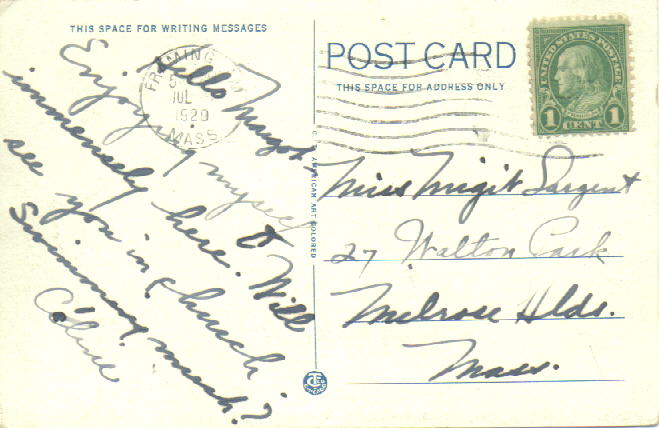 THIS SPACE FOR WRITING MESSAGES
Hello Margot,
Enjoying myself
immensely here. & Will
see you in church
Swimming much?
Céline
FRAMINGHAM
JUL
1929
MASS
C.T. AMERICAN ART COLORED
POST CARD
THIS SPACE FOR ADDRESS ONLY
UNITED STATES POSTAGE
1 CENT 1
Miss Migit Sargent
27 Walton Park
Melrose Hlds.
Mass.